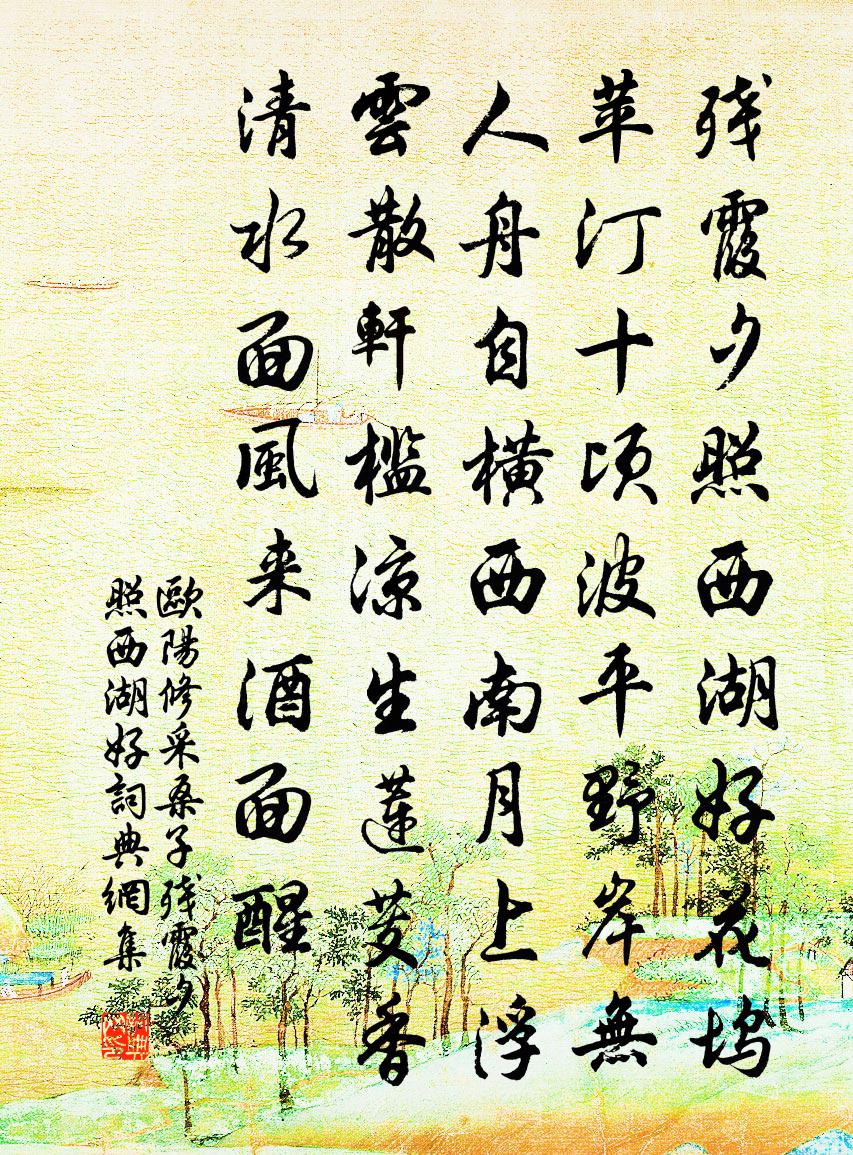 残霞夕照西湖好花坞
苹汀十顷波平野岸無
人舟自横西南月上浮
雲散軒槛凉生蓮芰香
清水面風来酒面醒
歐陽修采桑子残霞夕
照西湖好詞典網集